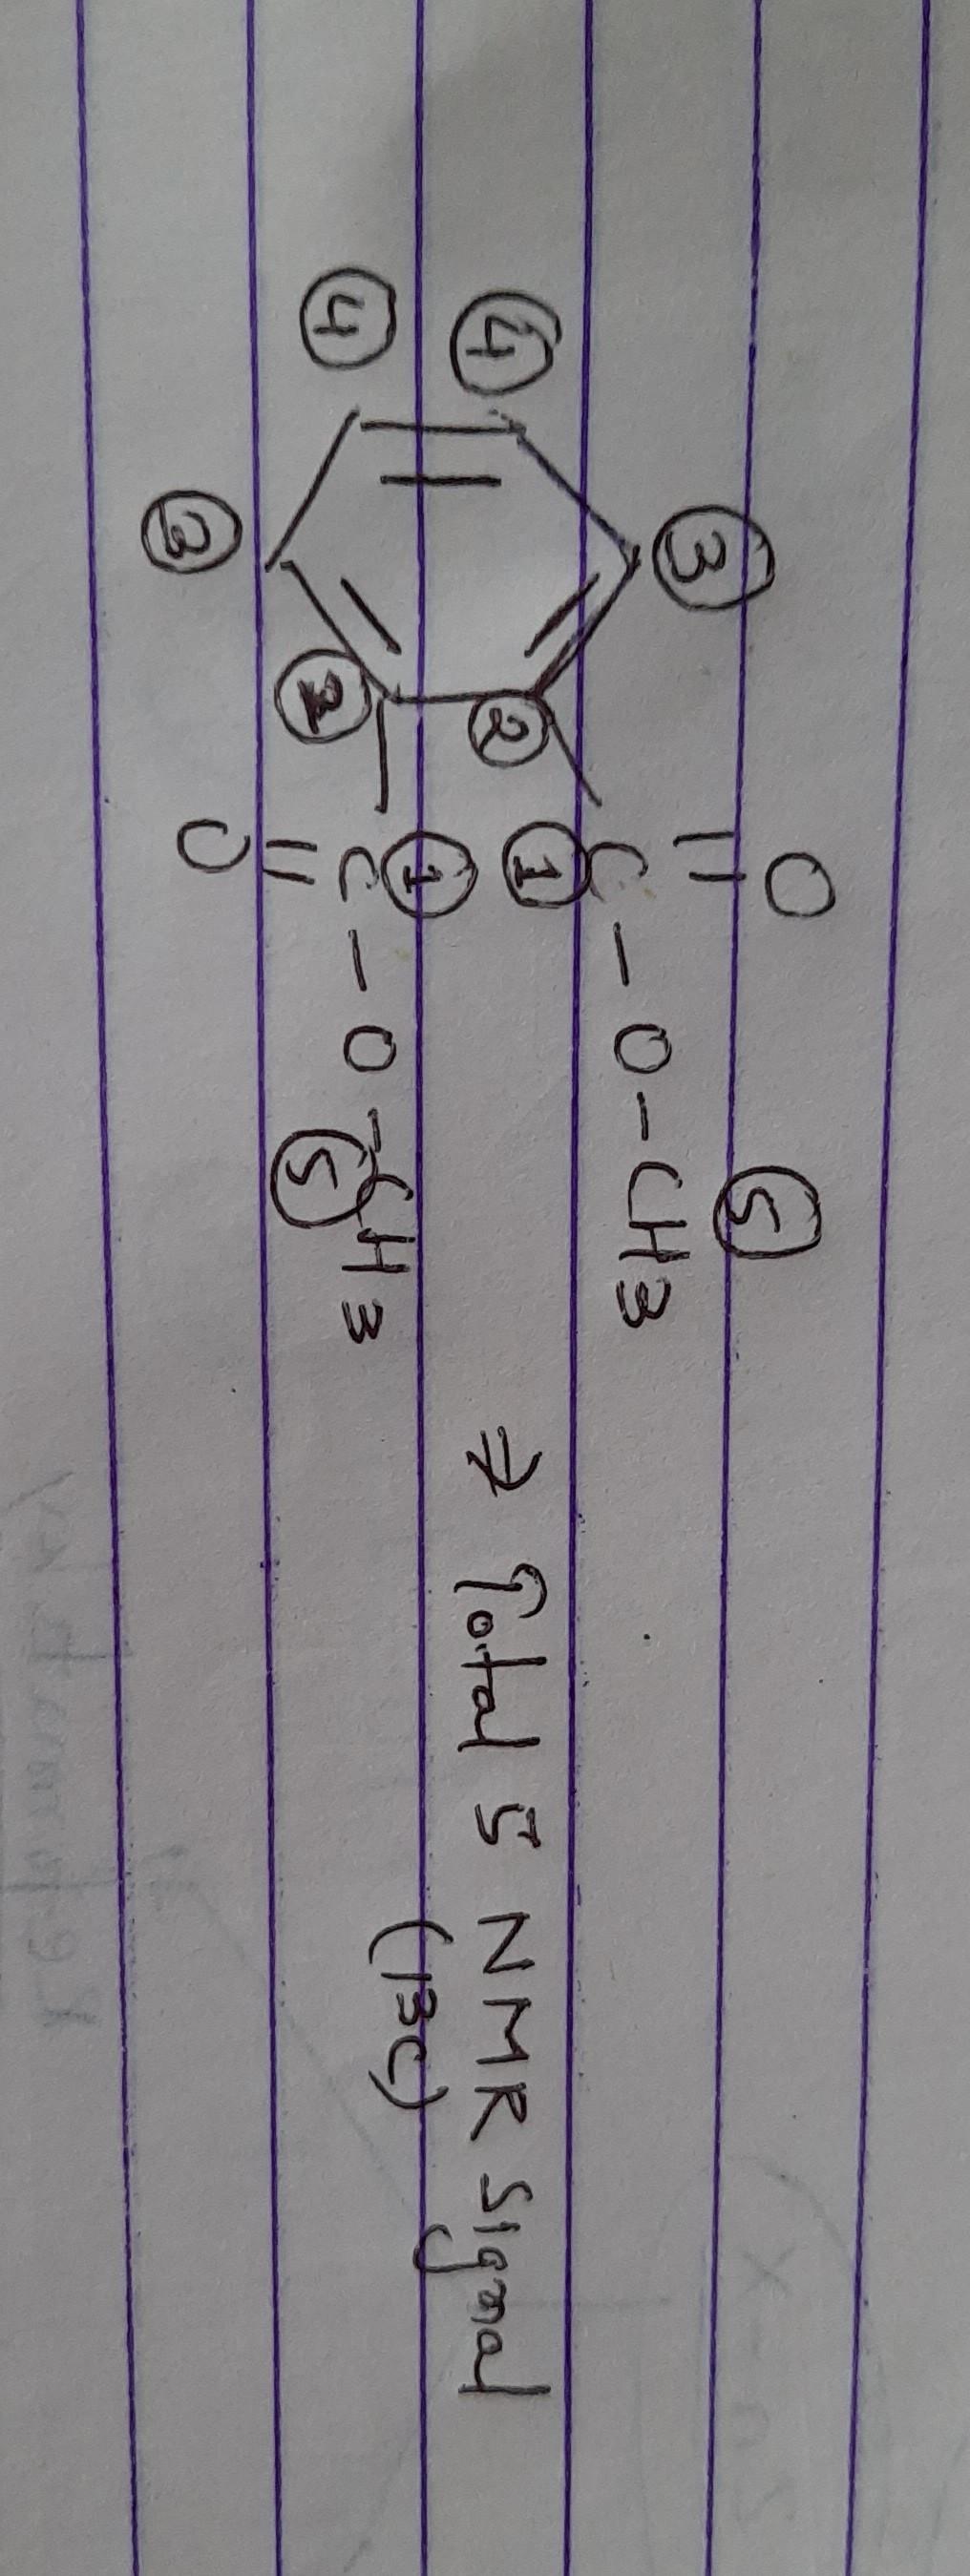 O ⑤
③ C - O - CH3
④ ② ① ⇒ Total 5 NMR signal
④ ① (13C)
C - O - CH3
② ⑤
③ O